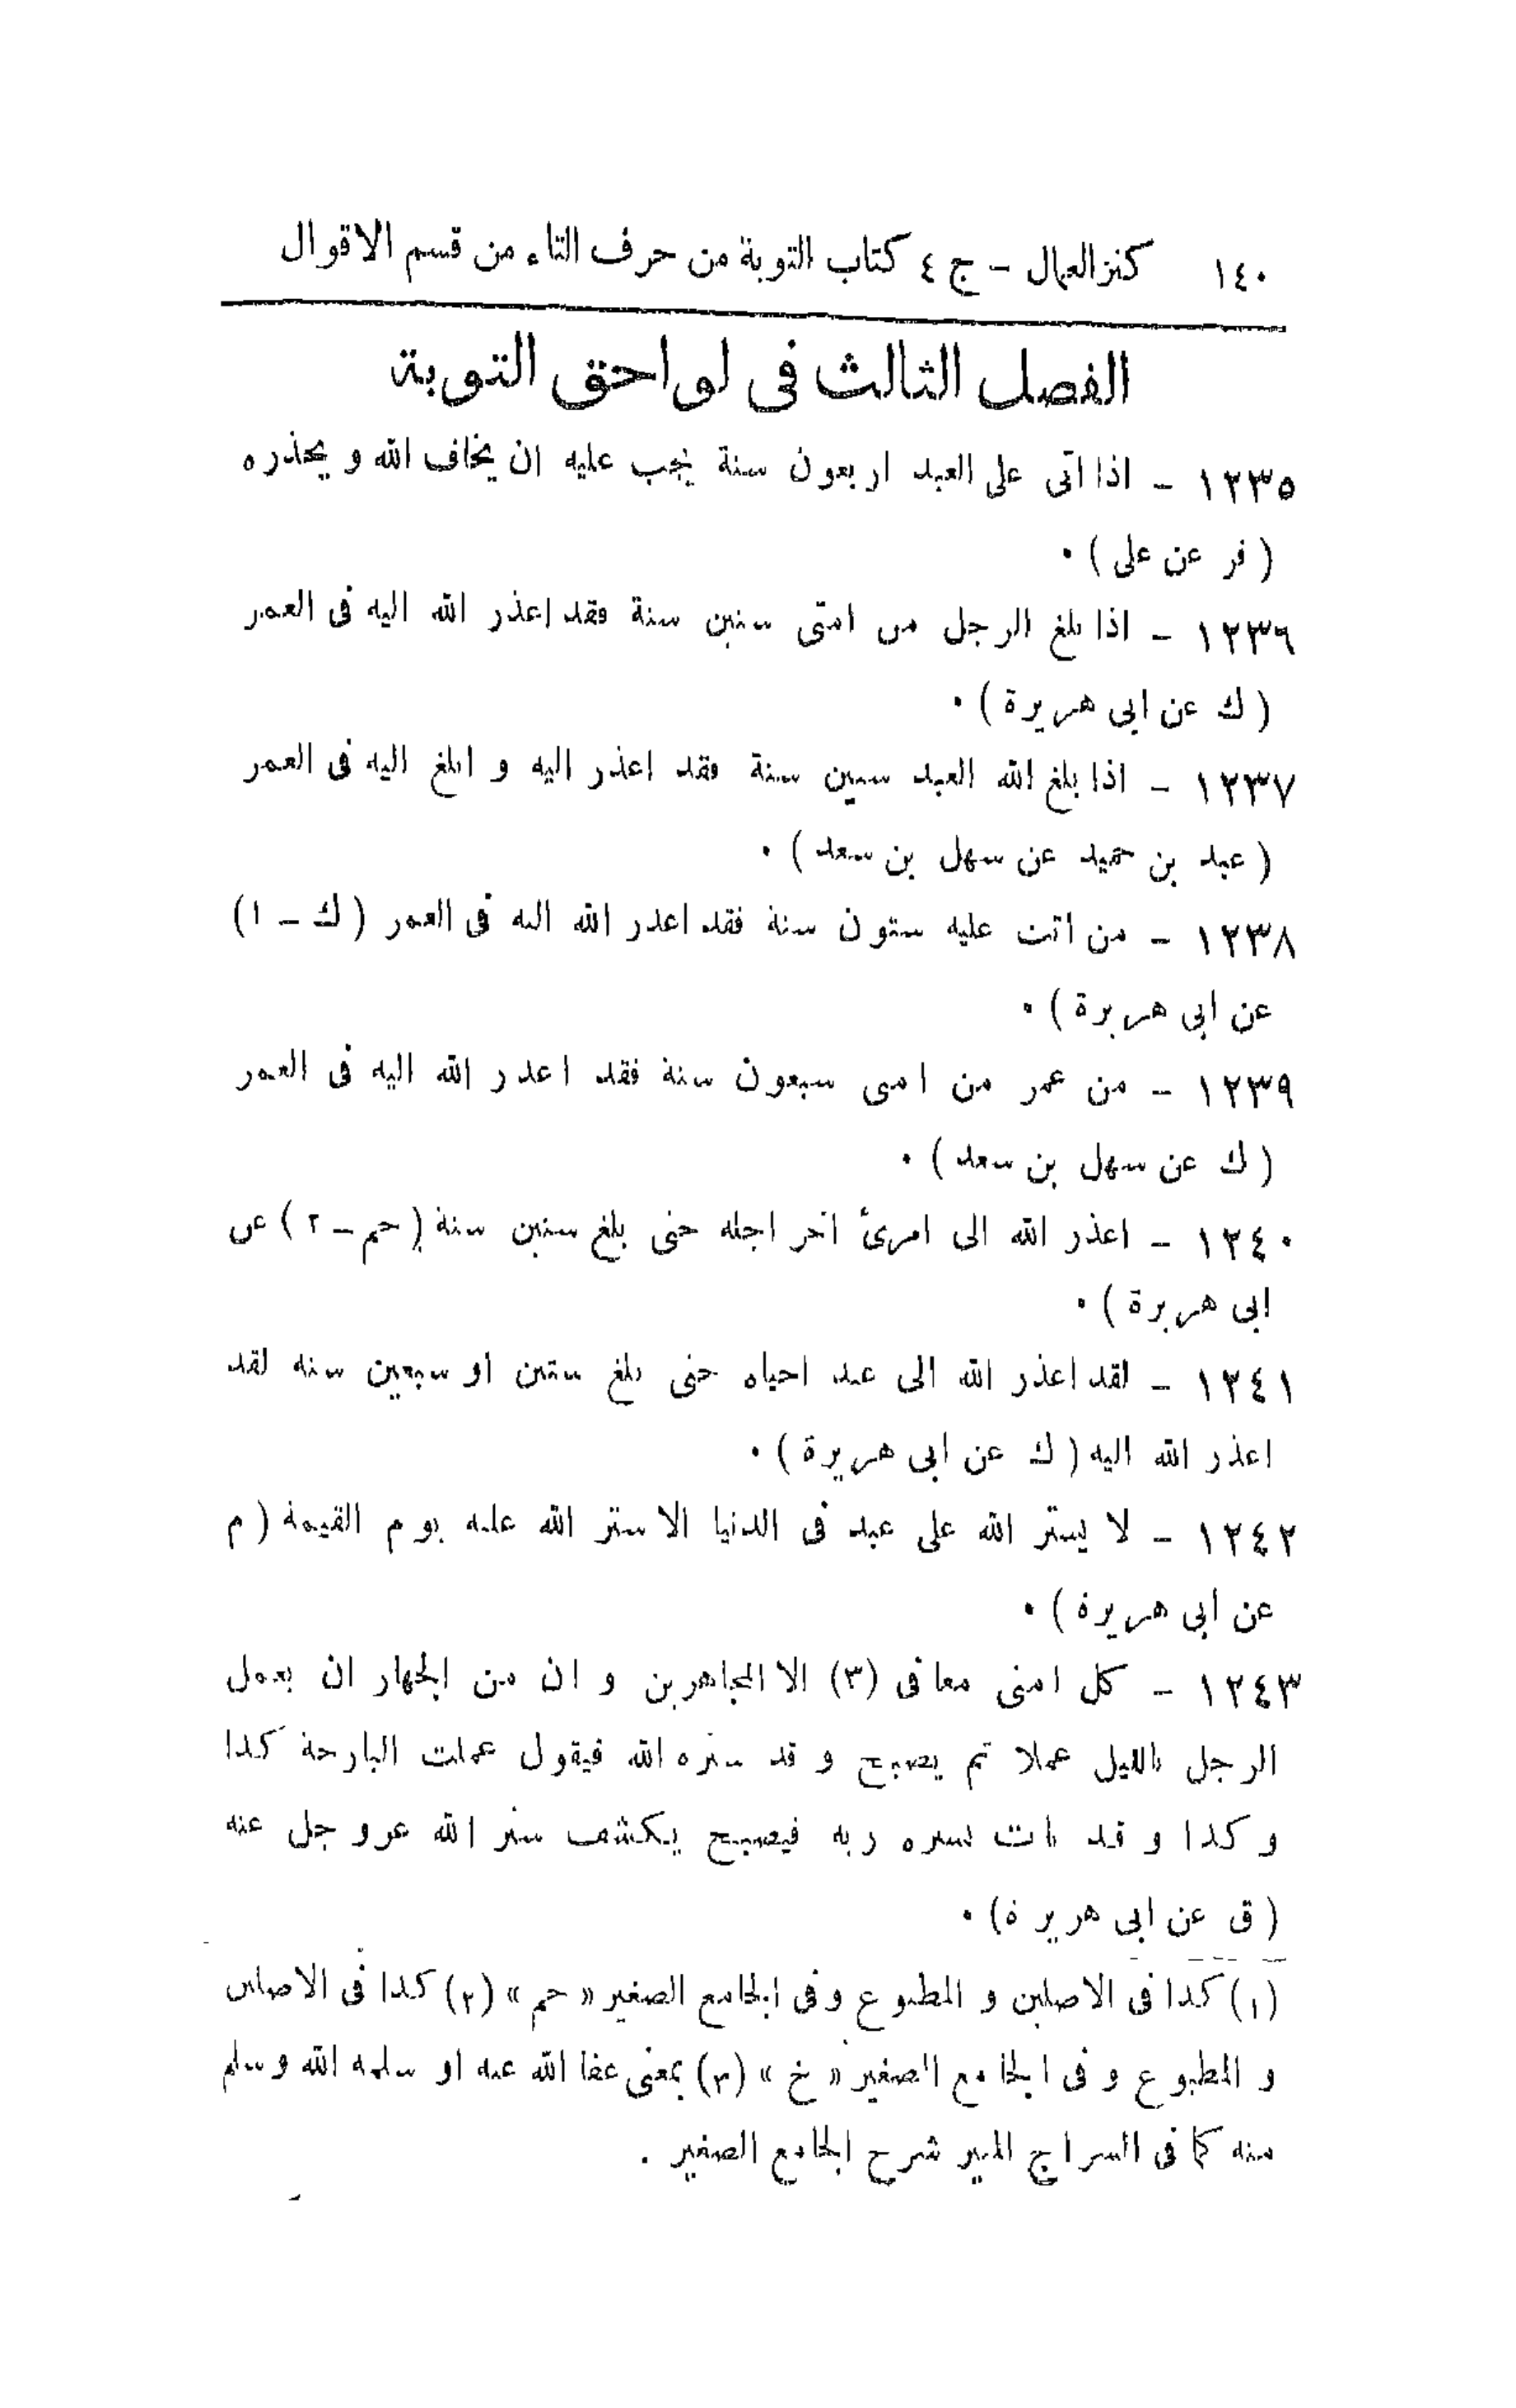 ١٤٠ كنز العمال - ج ٤ كتاب التوبة من حرف التاء من قسم الاقوال
الفصل الثالث فى لواحق التوبة
١٢٣٥ - اذا اتى على العبد اربعون سنة يجب عليه ان يخاف الله و يحذره
( فر عن على ) •
١٢٣٦ - اذا بلغ الرجل من امتى ستين سنة فقد اعذر الله اليه فى العمر
( ك عن ابى هريرة ) •
١٢٣٧ - اذا بلغ الله العبد ستين سنة فقد اعذر اليه و ابلغ اليه فى العمر
( عبد بن حميد عن سهل بن سعد ) •
١٢٣٨ - من اتت عليه ستون سنة فقد اعذر الله اليه فى العمر ( ك - ١)
عن ابى هريرة ) •
١٢٣٩ - من عمر من امتى سبعون سنة فقد اعذر الله اليه فى العمر
( ك عن سهل بن سعد ) •
١٢٤٠ - اعذر الله الى امرئ اخر اجله حتى بلغ ستين سنة ( حم - ٢ ) عن
ابى هريرة ) •
١٢٤١ - لقد اعذر الله الى عبد احياه حتى بلغ ستين او سبعين سنه لقد
اعذر الله اليه ( ك عن ابى هريرة ) •
١٢٤٢ - لا يستر الله على عبد فى الدنيا الا ستر الله عليه يوم القيمة ( م
عن ابى هريرة ) •
١٢٤٣ - كل امتى معافى (٣) الا المجاهرين و ان من الجهار ان يعمل
الرجل بالليل عملا ثم يصبح و قد ستره الله فيقول عملت البارحة كذا
و كذا و قد بات يستره ربه فيصبح يكشف ستر الله عز و جل عنه
( ق عن ابى هريرة ) •
(١) كذا فى الاصلين و المطبوع وفى الجامع الصغير « حم » (٢) كذا فى الاصلين
و المطبوع و فى الجامع الصغير « خ » (٣) بمعنى عفا الله عنه او سلمه الله وسلم
منه كما فى السراج المنير شرح الجامع الصغير .